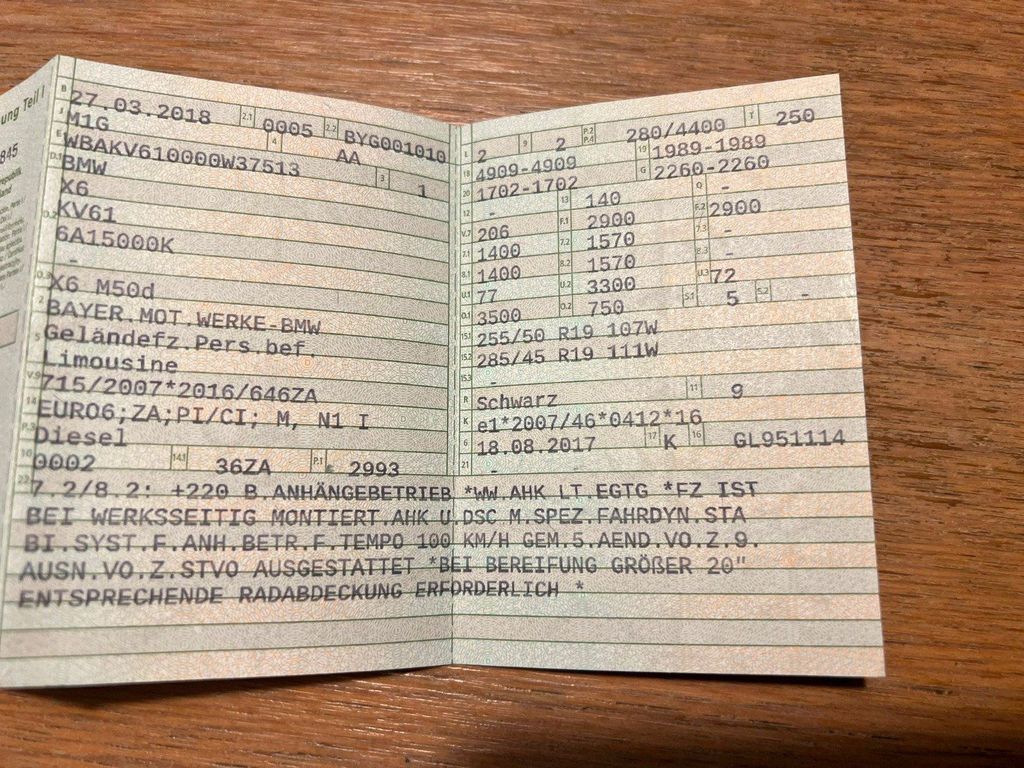 ung Teil I
845
B 27.03.2018 2.1 0005 2.2 BYG001010
J M1G 4 AA
E WBAKV610000W37513 3 1
D.1 BMW
X6
D.2 KV61
6A15000K
-
D.3 X6 M50d
2 BAYER.MOT.WERKE-BMW
5 Geländefz.Pers.bef.
Limousine
V.9 715/2007*2016/646ZA
14 EURO6;ZA;PI/CI; M, N1 I
P.3 Diesel
10 0002 14.1 36ZA P.1 2993
L 2 9 2 P.2 P.4 280/4400 T 250
18 4909-4909 19 1989-1989
20 1702-1702 G 2260-2260
12 - 13 140 Q -
V.7 206 F.1 2900 F.2 2900
7.1 1400 7.2 1570 7.3 -
8.1 1400 8.2 1570 8.3 -
U.1 77 U.2 3300 U.3 72
O.1 3500 O.2 750 S.1 5 S.2 -
15.1 255/50 R19 107W
15.2 285/45 R19 111W
15.3 -
R Schwarz 11 9
K e1*2007/46*0412*16
6 18.08.2017 17 K 16 GL951114
21 - -
22 7.2/8.2: +220 B.ANHÄNGEBETRIEB *WW.AHK LT.EGTG *FZ IST
BEI WERKSSEITIG MONTIERT.AHK U.DSC M.SPEZ.FAHRDYN.STA
BI.SYST.F.ANH.BETR.F.TEMPO 100 KM/H GEM.5.AEND.VO.Z.9.
AUSN.VO.Z.STVO AUSGESTATTET *BEI BEREIFUNG GRÖßER 20"
ENTSPRECHENDE RADABDECKUNG ERFORDERLICH *